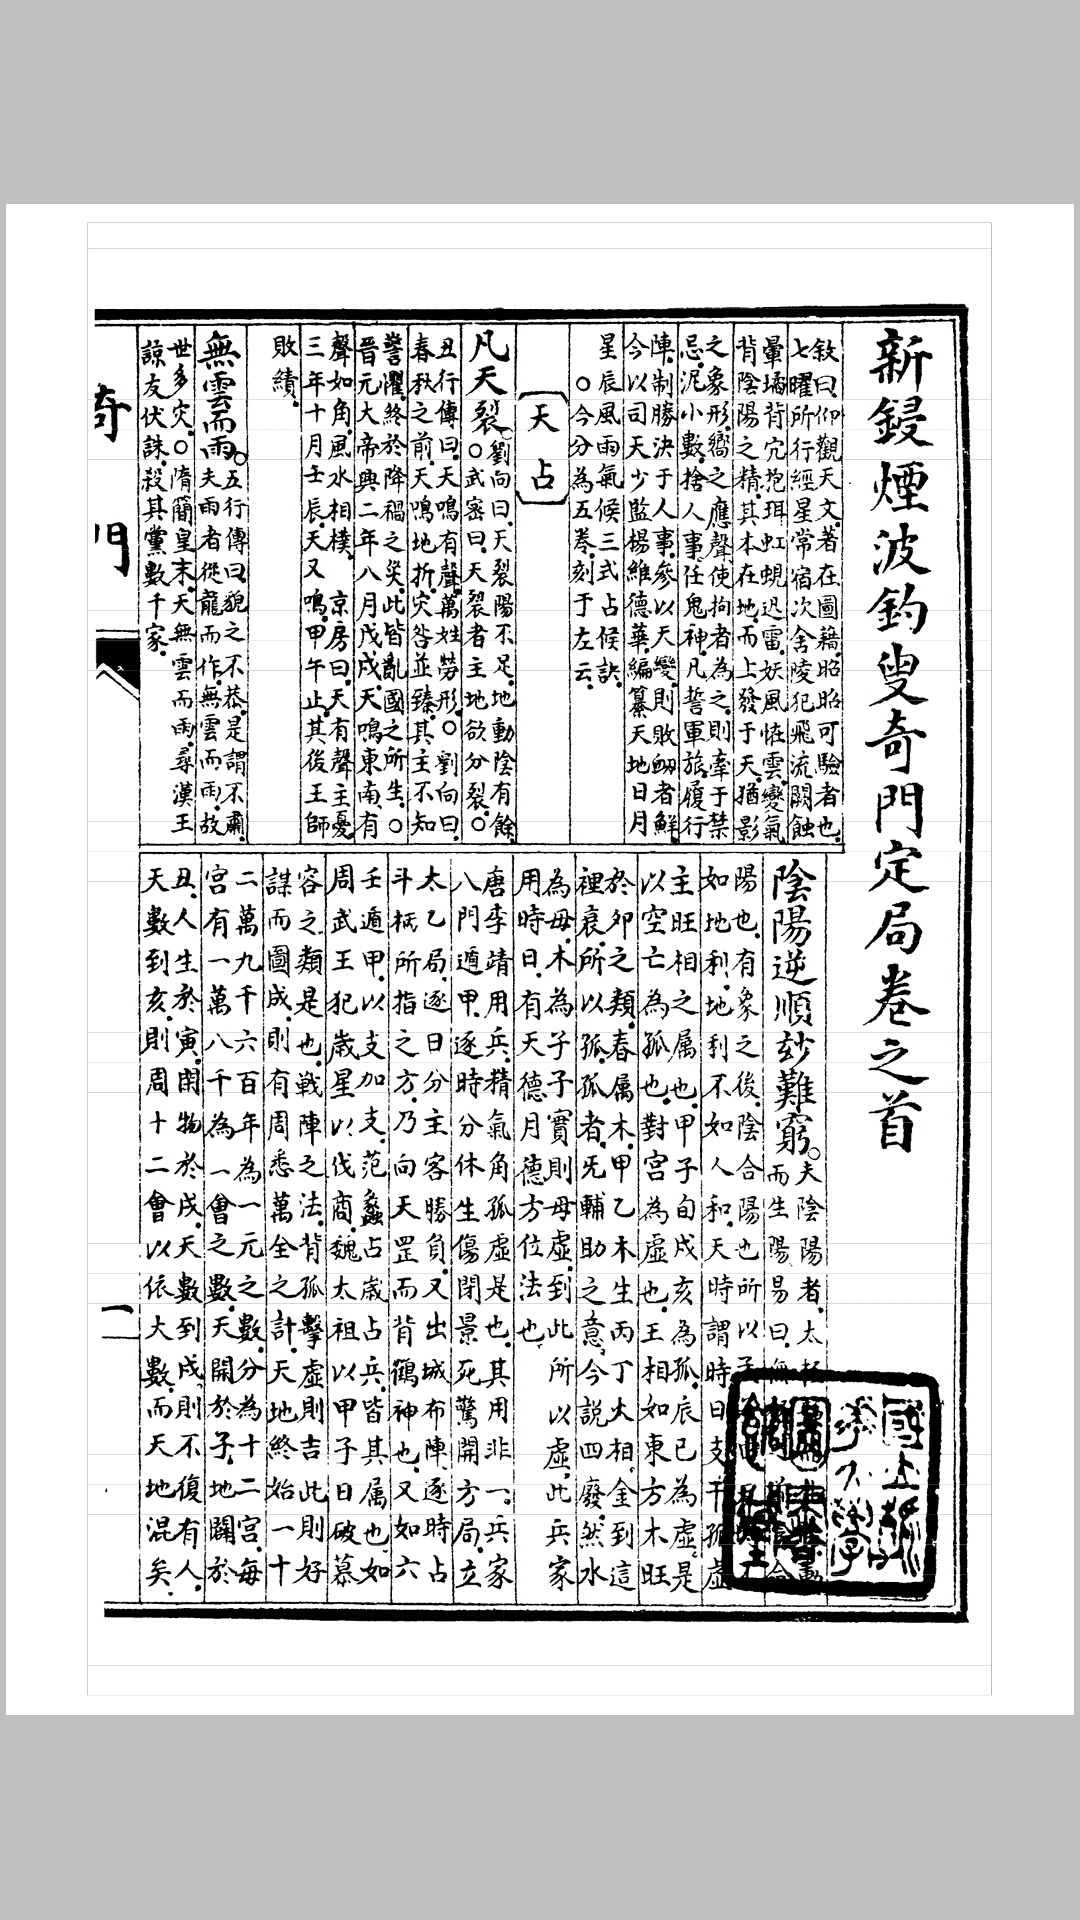 新鋟煙波釣叟奇門定局卷之首
敘曰仰觀天文著在圖籍昭昭可驗者也
七曜所行經星常宿次舍陵犯飛流闕蝕
暈璚背穴抱珥虹蜺迅雷妖風恠雲變氣
背陰陽之精其本在地而上發于天猶影
之象形嚮之應聲使拘者為之則牽于禁
忌泥小數捨人事任鬼神凡誓軍旅履行
陣制勝決于人事參以天變則敗衂者鮮
今以司天少監楊維德華編纂天地日月
星辰風雨氣候三式占候訣
○今分為五卷刻于左云
天占
凡天裂劉向曰天裂陽不足地動陰有餘
○武密曰天裂者主地欲分裂○
丑行傳曰天鳴有聲萬姓勞形○劉向曰
春秋之前天鳴地折灾咎並臻其主不知
警懼終於降禍之災此皆亂國之所生○
晉元大帝興二年八月戊戌天鳴東南有
聲如角風水相樸 京房曰天有聲主憂
三年十月壬辰天又鳴甲午止其後王師
敗績
無雲而雨○五行傳曰貌之不恭是謂不肅
夫雨者從龍而作無雲而雨故
世多灾○隋簡皇末天無雲而雨尋漢王
諒友伏誅殺其黨數千家
陰陽逆順玅難窮○夫陰陽者太極
而生陽易曰
陽也有象之後陰合陽也所以
如地利地利不如人和天時謂時日支干孤虛
主旺相之属也甲子旬戌亥為孤辰巳為虛是
以空亡為孤也對宮為虛也王相如東方木旺
於夘之類春属木甲乙木生丙丁火相金到這
裡衰所以孤孤者旡輔助之意今説四廢然水
為毋木為子子實則母虛到此所以虛此兵家
用時日有天德月德方位法也
唐李靖用兵精氣角孤虛是也其用非一兵家
八門遁甲逐時分休生傷閉景死驚開方局立
太乙局逐日分主客勝負又出城布陣逐時占
斗柄所指之方乃向天罡而背鶴神也又如六
壬遁甲以支加支范蠡占歲占兵皆其属也如
周武王犯歲星以伐商魏太祖以甲子日破慕
容之類是也戦陣之法背孤擊虛則吉此則好
謀而圖成則有周悉萬全之計天地終始一十
二萬九千六百年為一元之數分為十二宮每
宮有一萬八千為一會之數天開於子地闢於
丑人生於寅閉物於戌天數到戌則不復有人
天數到亥則周十二會以依大數而天地混矣
奇門
一